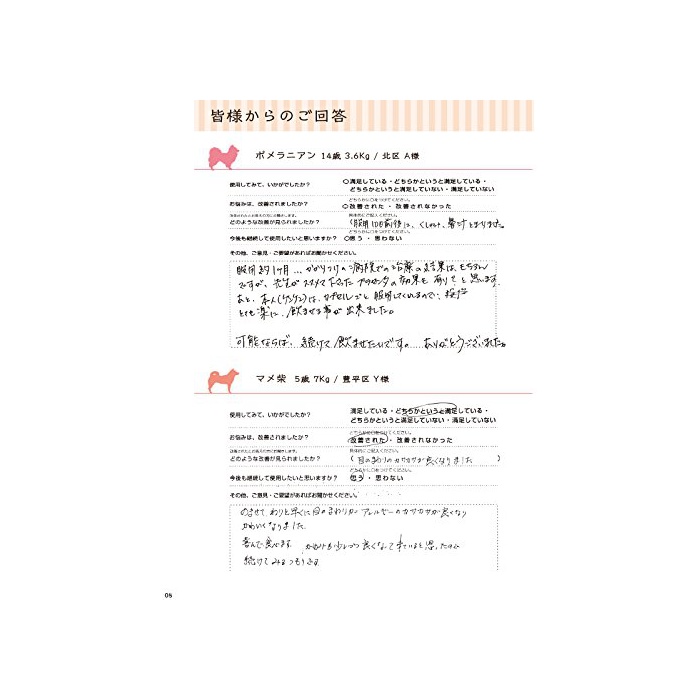 皆様からのご回答
ポメラニアン 14歳 3.6Kg / 北区 A様
使用してみて、いかがでしたか？
○満足している・どちらかというと満足している・
どちらかというと満足していない・満足していない
お悩みは、改善されましたか？
どちらかに○をつけてください。
○改善された・改善されなかった
どのような改善が見られましたか？
具体的にご記入ください。
(服用10日前後に、くしゃみ、鼻汁とまりました。
今後も継続して使用したいと思いますか？
どちらかに○をつけてください。
○思う・思わない
その他、ご意見・ご要望があればお聞かせください。
服用約1ヶ月…かかりつけの病院での治療の結果は、もちろん
ですが、先生がススメて下さったプラセンタの効果も有り？と思います。
あと、本人(ワンワン)は、カプセルごと服用してくれるので、
とても楽に、飲ませる事が出来ました。
可能ならば、続けて飲ませたいです。…ありがとうございました。
マメ柴 5歳 7Kg / 豊平区 Y様
使用してみて、いかがでしたか？
満足している・どちらかというと満足している・
どちらかというと満足していない・満足していない
お悩みは、改善されましたか？
どちらかに○をつけてください。
改善された・改善されなかった
どのような改善が見られましたか？
具体的にご記入ください。
(目の周りのカサカサが良くなりました)
今後も継続して使用したいと思いますか？
どちらかに○をつけてください。
思う・思わない
その他、ご意見・ご要望があればお聞かせください。
のませて、わりと早くに目のまわりが アレルギーのカサカサが良くなり
かわいくなりました。
喜んで食べます。 かゆみも少しづつ良くなって来ていると思ったので
続けてみるつもりです。
05